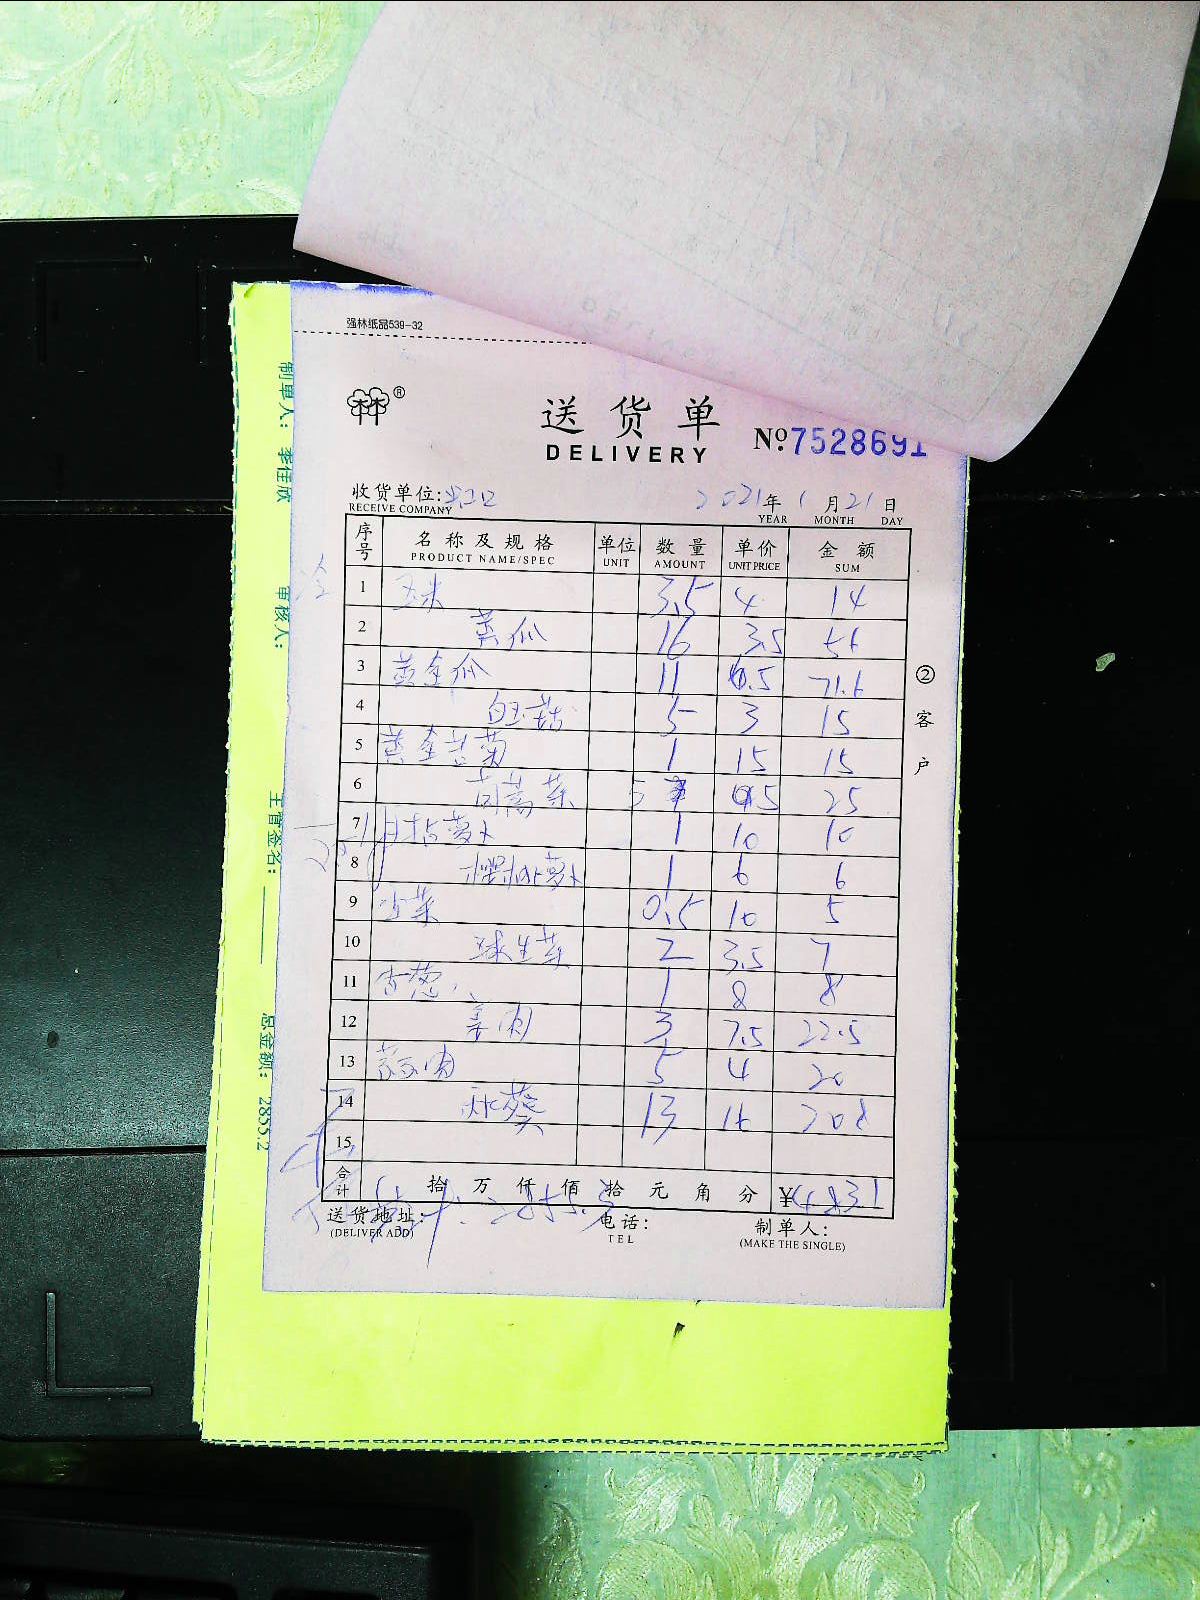 强林纸品539-32
®
送货单
DELIVERY
No 7528691
收货单位:
RECEIVE COMPANY
2021年1月21日
YEAR MONTH DAY
序号 名称及规格 单位 数量 单价 金额
PRODUCT NAME/SPEC UNIT AMOUNT UNIT PRICE SUM
1 玉米 3.5 4 14
2 黄瓜 16 3.5 56
3 黄金瓜 11 6.5 71.5
4 白玉菇 5 3 15
5 黄金苦菊 1 15 15
6 茼蒿菜 5 25
7 萝卜 1 10 10
8 樱桃萝卜 1 6 6
9 0.5 10 5
10 球生菜 2 3.5 7
11 香葱 1 8 8
12 姜肉 3 7.5 22.5
13 5 4 20
14 秋葵 13 16 208
15
合计 拾万仟佰拾元角分 ¥483.1
送货地址:
(DELIVER ADD)
电话:
TEL
制单人:
(MAKE THE SINGLE)
②客户
制单人: 李佳欣
审核人:
主管签名:
总金额: 2855.2